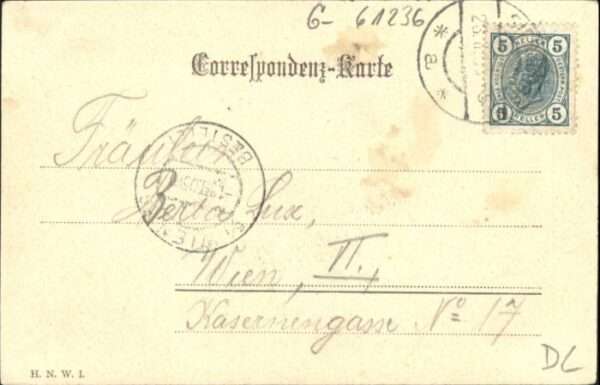 G- 61236
Correspondenz-Karte
5 HELLER 5
6 HELLER 5
* a *
BESTELLT
WIEN
Fräulein
Berta Lux,
Wien, VI.,
Kasernengasse No 17
DL
H. N. W. I.